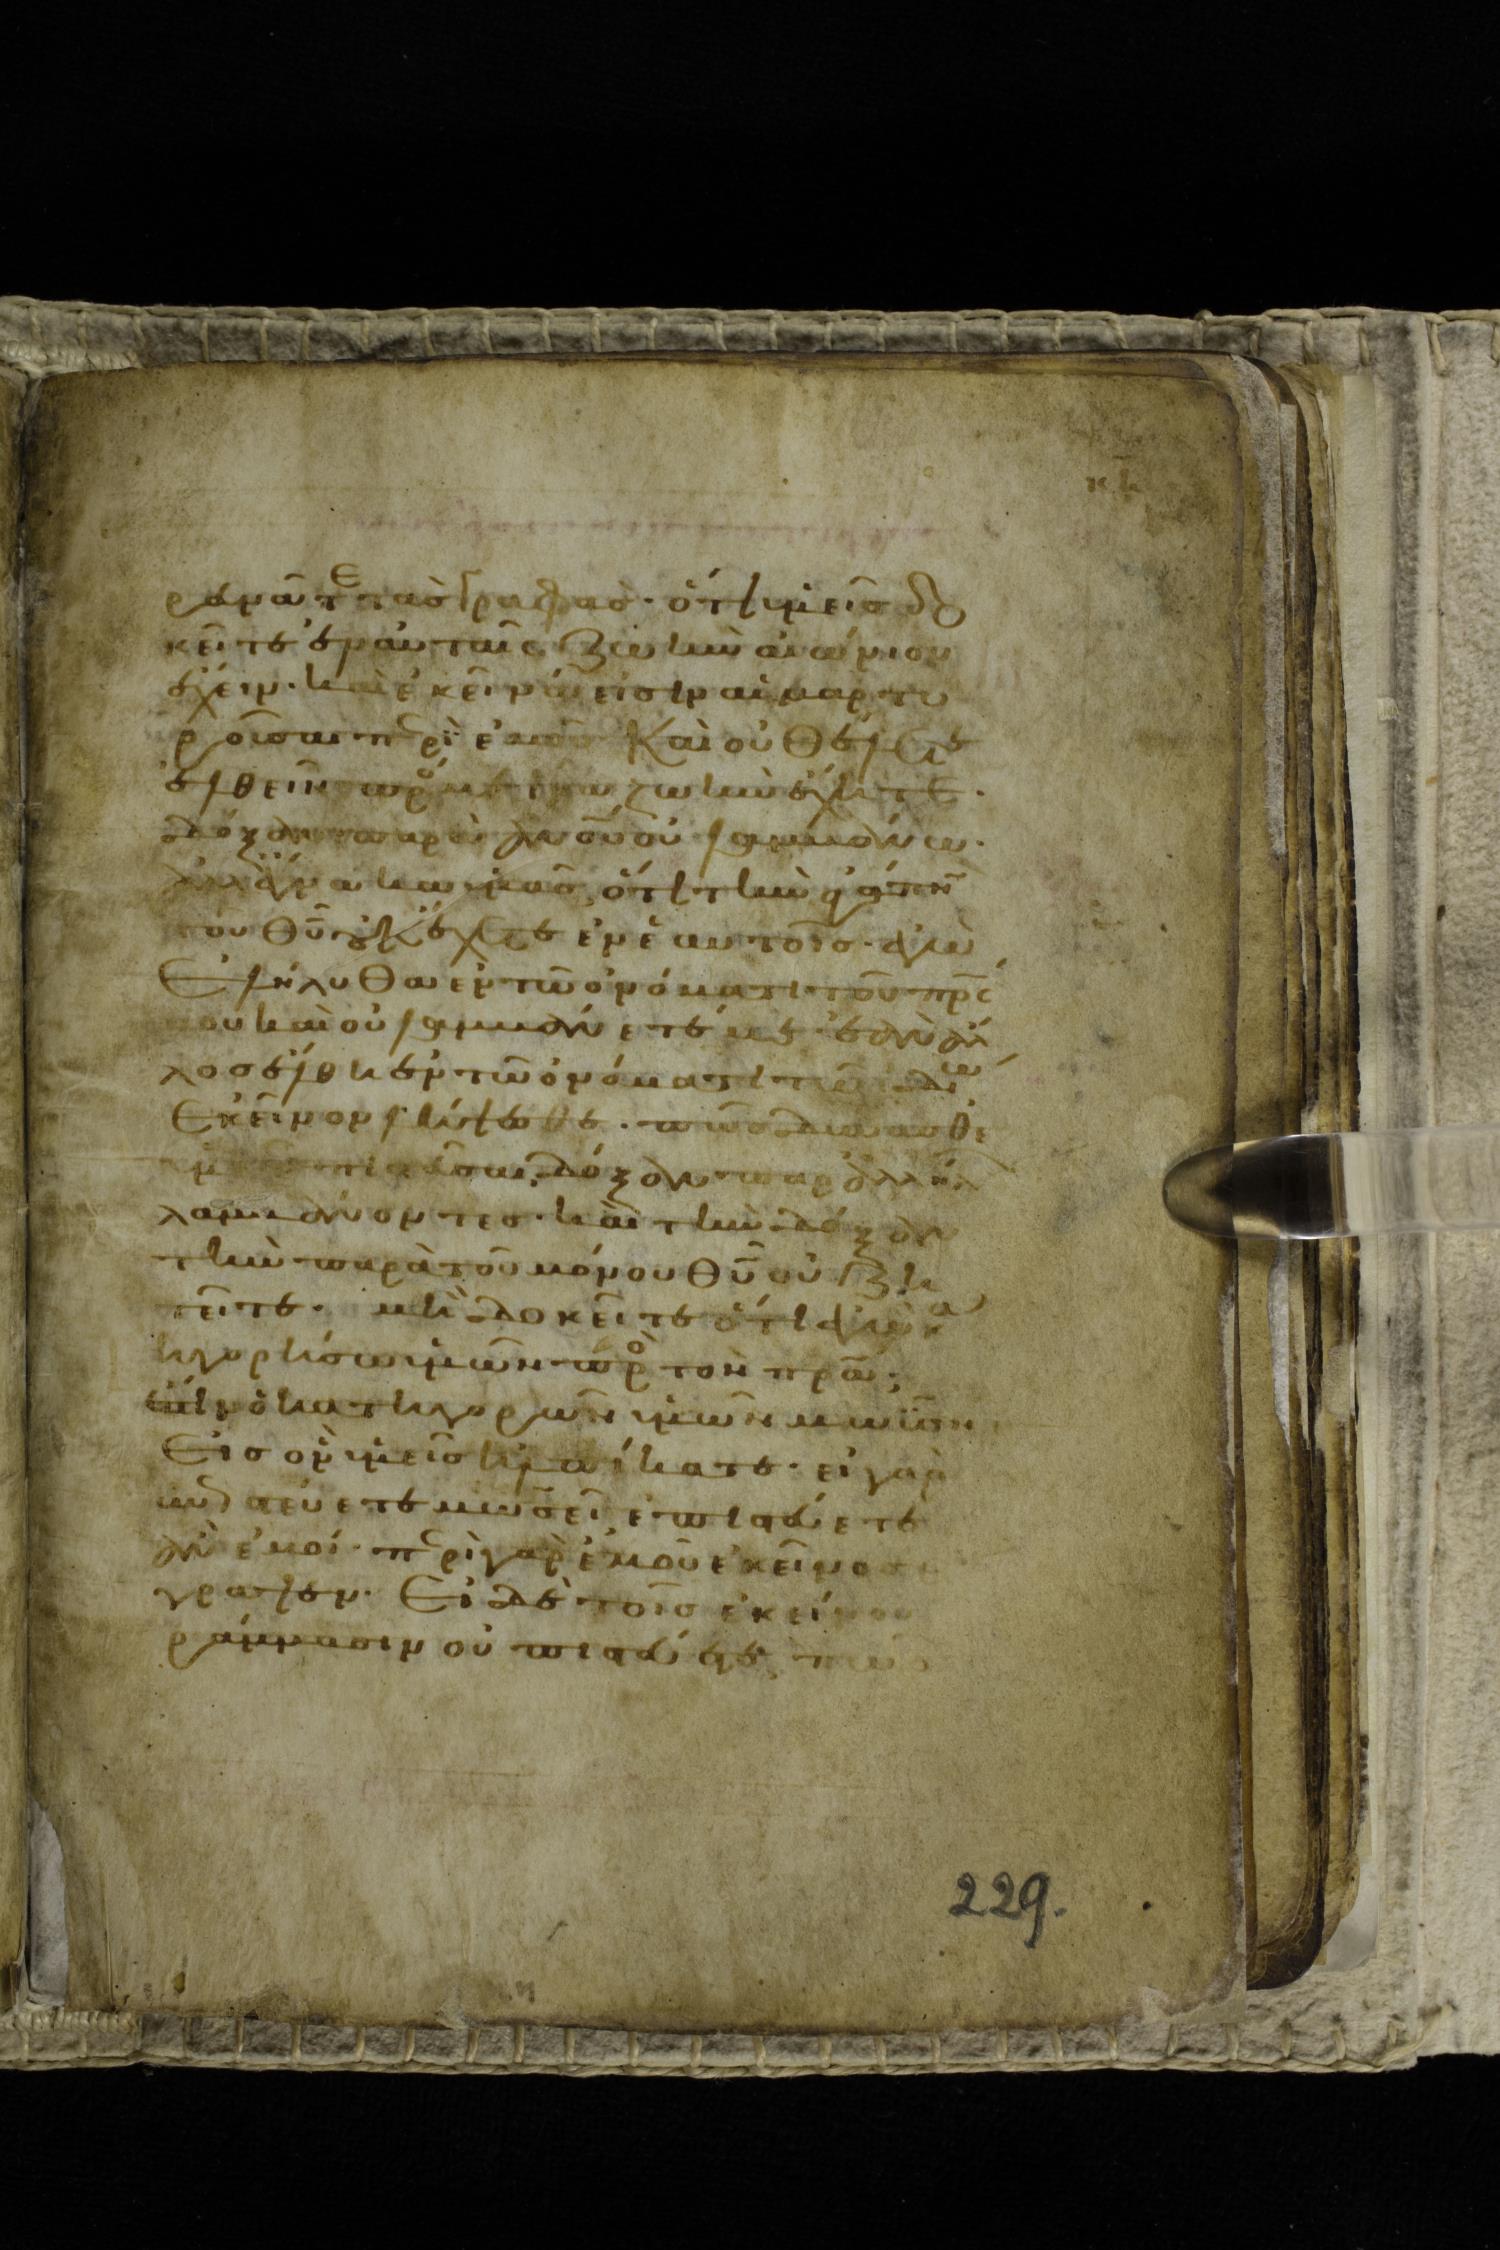 ραυνᾶτε τὰς γραφὰς· ὅτι ὑμεῖς δο
κεῖτε ἐν αὐταῖς ζωὴν αἰώνιον
ἔχειν· καὶ ἐκεῖναι εἰσιν αἱ μαρτυ
ροῦσαι περὶ ἐμοῦ Καὶ οὐ θέλετε
ἐλθεῖν πρό με ἵνα ζωὴν ἔχητε·
δόξαν παρὰ ἀνου οὐ λαμβάνω·
ἀλλ' ἔγνωκα ὑμᾶς, ὅτι τὴν ἀγάπην
τοῦ θυ οὐκ ἔχετε ἐν ἑαυτοῖς· ἐγὼ
Ἐλήλυθα ἐν τῶ ὀνόματι τοῦ πρς
μου καὶ οὐ λαμβάνετέ με· ἐὰν ἄλ
λος ἔλθη ἐν τῶ ὀνόματι τῶ ἰδίω
Ἐκεῖνον λήψεσθε· πῶς δύνασθε
ὑμεῖς πιστεῦσαι, δόξαν παρ' ἀλλήλ
λαμβάνοντες· καὶ τὴν δόξαν
τὴν παρὰ τοῦ μόνου θυ οὐ ζη
τεῖτε· μὴ δοκεῖτε ὅτι ἐγὼ κα
τηγορήσω ὑμῶν πρὸ τὸν πρα;
ἔστιν ὁ κατηγορῶν ὑμῶν μωϋσῆς
Εἰς ὃν ὑμεῖς ἠλπίκατε· εἰ γὰρ
ἐπιστεύετε μωσεῖ ἐπιστεύετε
ἂν ἐμοί· περὶ γὰρ ἐμοῦ ἐκεῖνος
γραψεν· Εἰ δὲ τοῖς ἐκείνου
ράμμασιν οὐ πιστεύετε, πῶς
229.